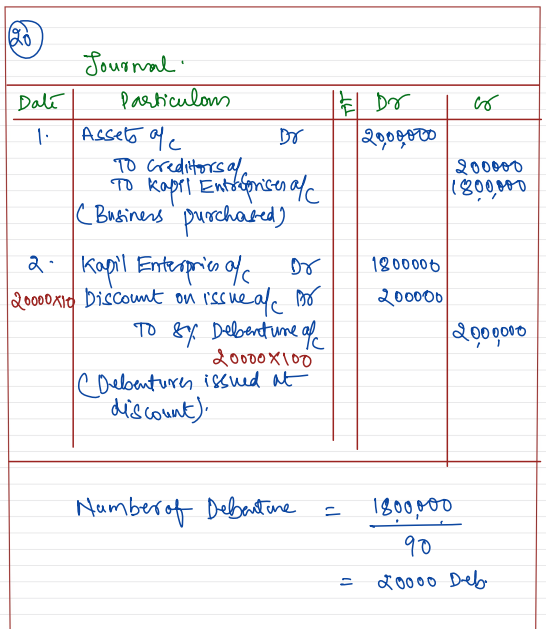 20
Journal.
Date Particulars LF Dr Cr
1. Assets a/c Dr 20,00,000
To Creditors a/c 200000
To Kapil Enterprises a/c 18,00,000
(Business purchased)
2. Kapil Enterpries a/c Dr 1800000
20000×10 Discount on issue a/c Dr 200000
To 8% Debenture a/c 20,00,000
20000×100
(Debentures issued at
discount).
Number of Debenture = 18,00,000
90
= 20000 Deb.